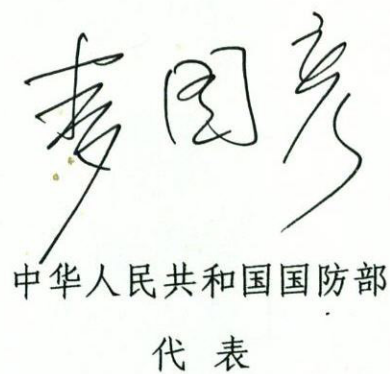 中华人民共和国国防部
代 表